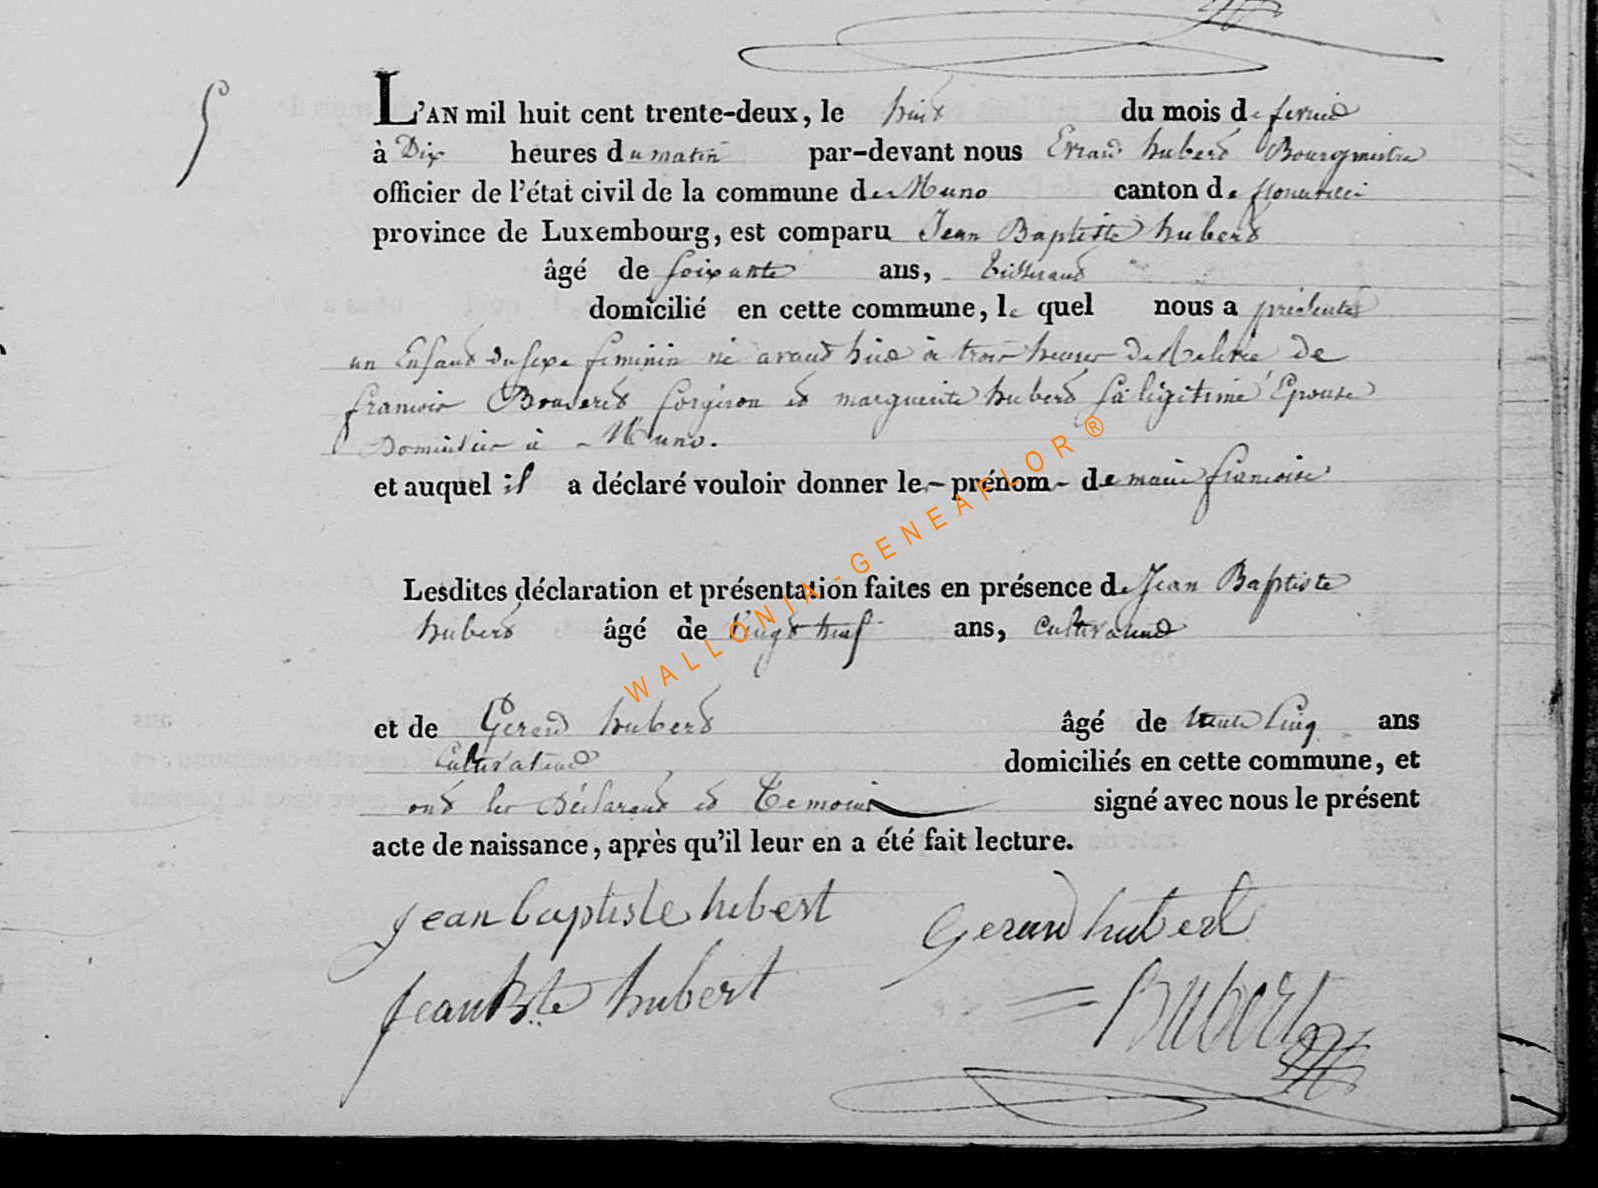 5
L'AN mil huit cent trente-deux, le huit du mois de fevrier
à Dix heures du matin par-devant nous Errard hubert Bourgmestre
officier de l'état civil de la commune de Muno canton de florenville
province de Luxembourg, est comparu Jean Baptiste hubert
âgé de soixante ans, tisserand
domicilié en cette commune, le quel nous a présenté
un Enfant du sexe feminin né avant hier à trois heures de de
francois forgeron et marguerite hubert sa légitime Epouse
Domicilies à Muno.
et auquel il a déclaré vouloir donner le prénom de marie francoise
Lesdites déclaration et présentation faites en présence de Jean Baptiste
hubert âgé de vingt neuf ans, cultivateur
et de Gerard hubert âgé de trente cinq ans
cultivateur domiciliés en cette commune, et
ont les Déclarant et Temoins signé avec nous le présent
acte de naissance, après qu'il leur en a été fait lecture.
jean baptiste hubert Gerard hubert
jean Bte hubert Hubert
WALLONIA-GENEAFLOR®